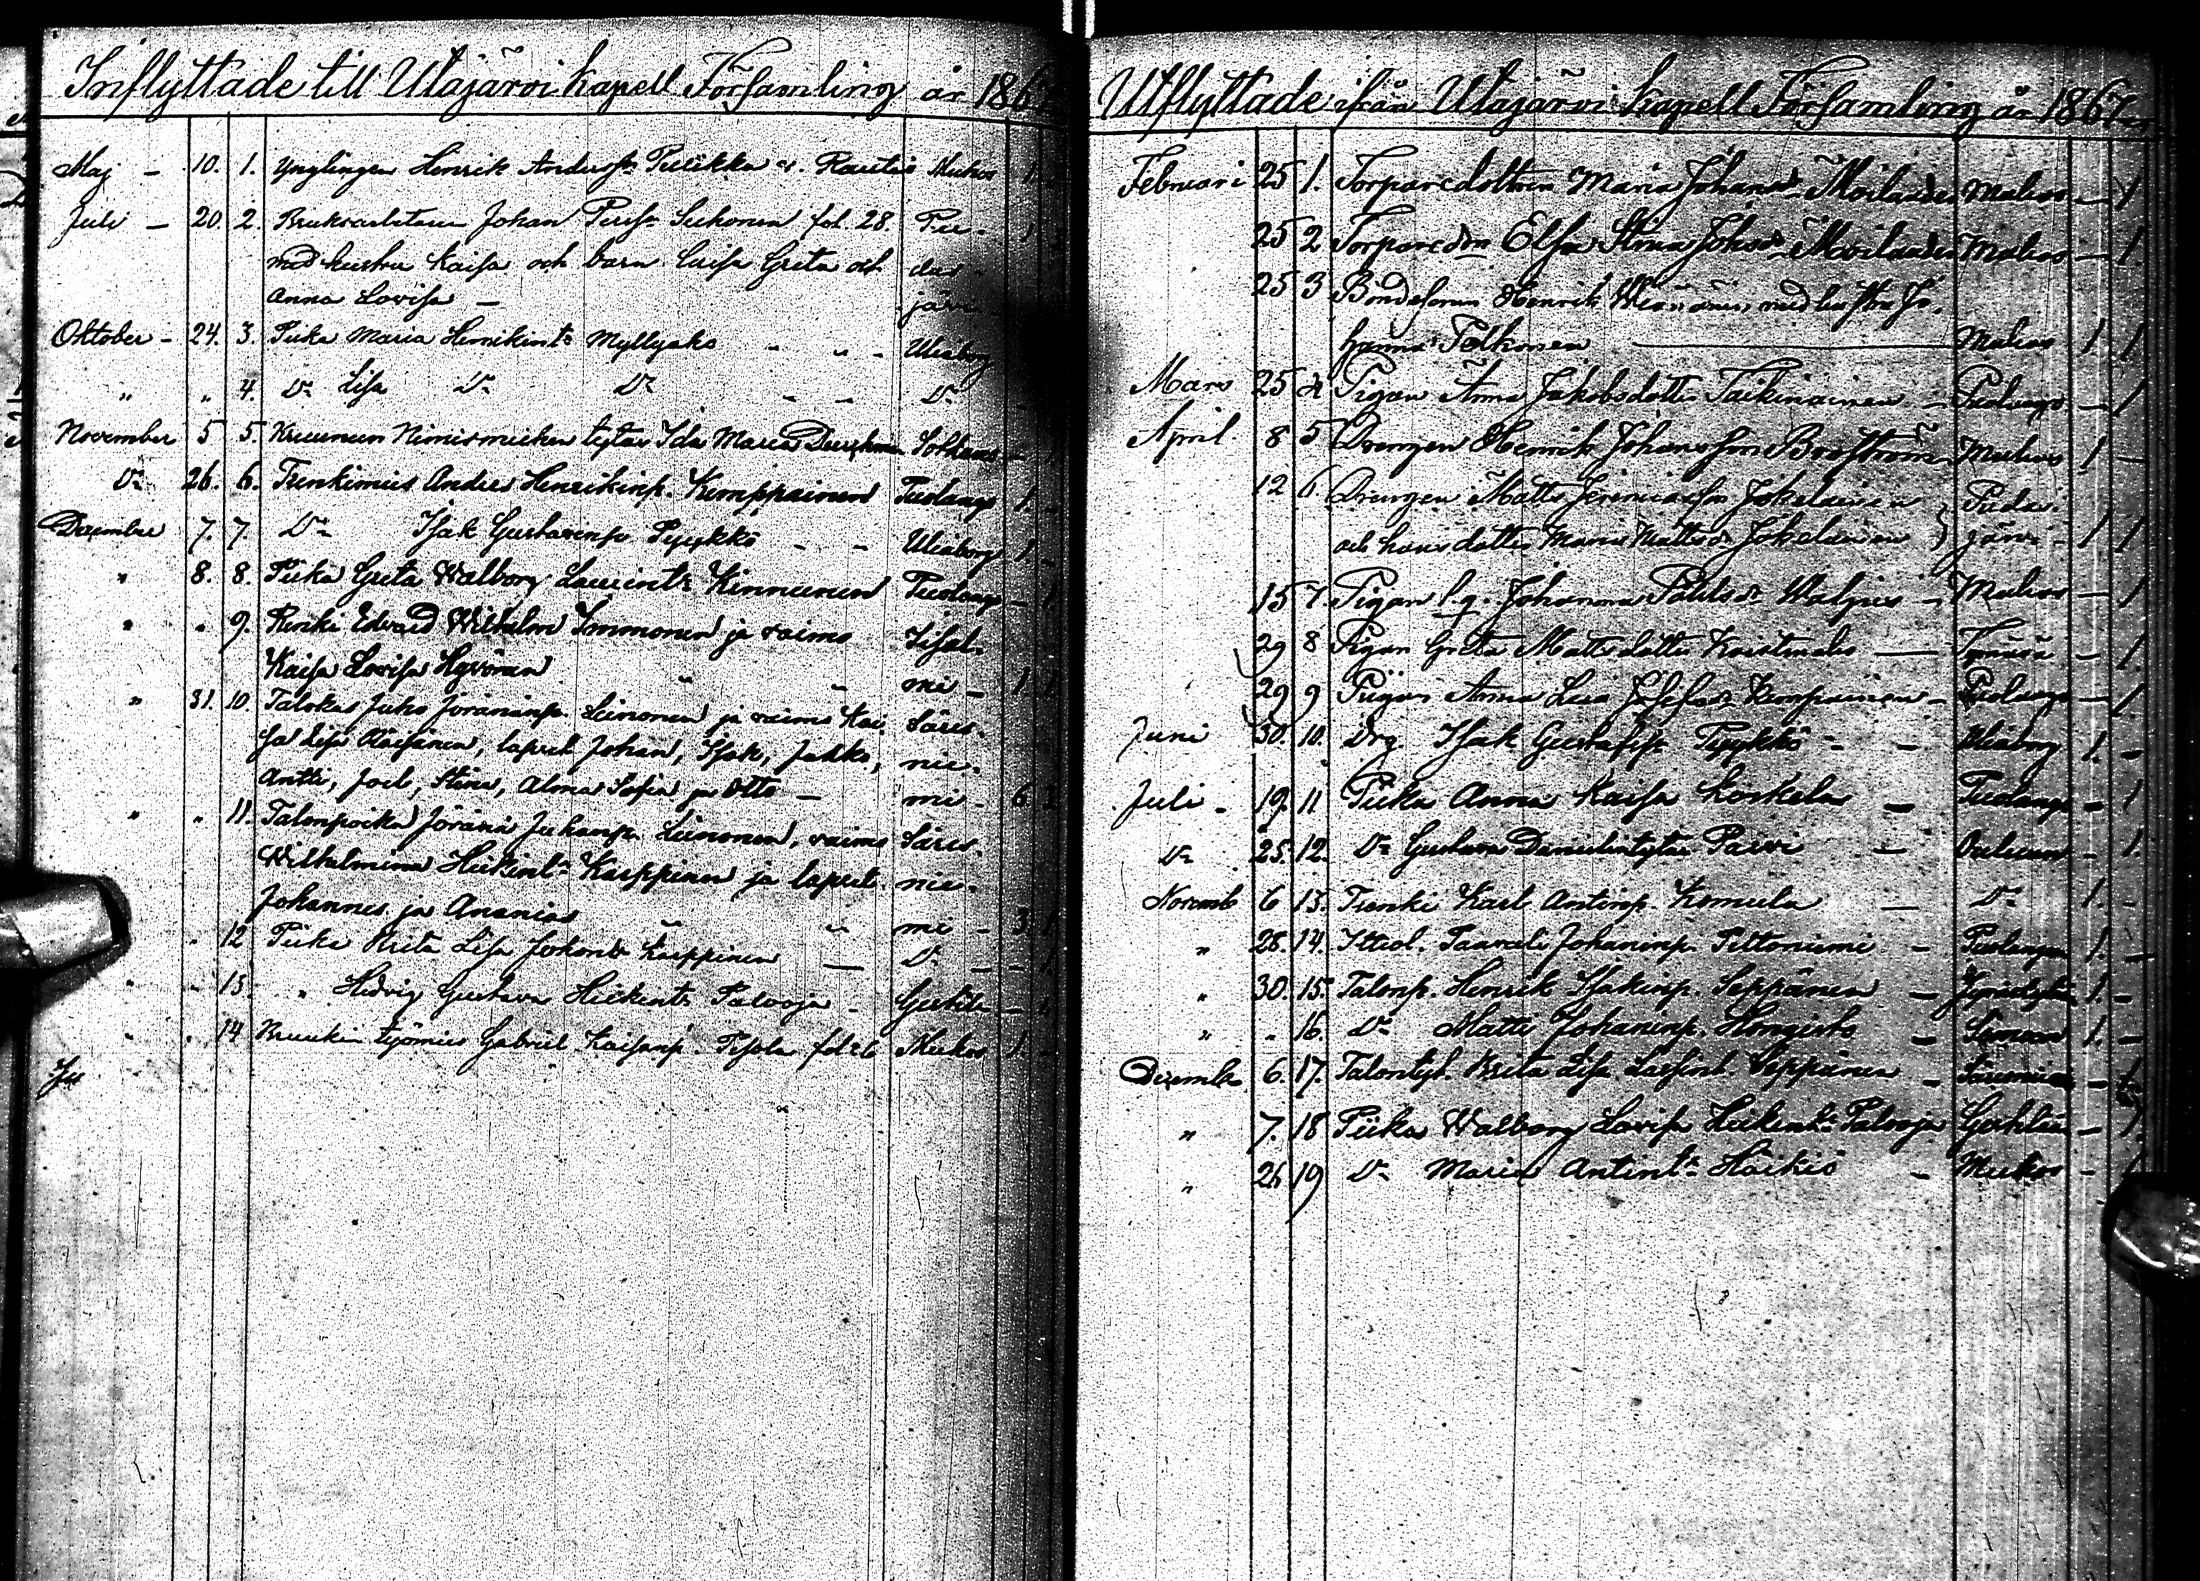 Inflyttade till Utajärvi Kapell Församling år 1867
Maj — 10. 1. Ynglingen Henrik Anderss. Pulikka Muhos 1
Juli — 20. 2. Johan Sukonen fol. 28. Pu-
med hustru Kaisa och barn Caisa Greta och das-
Anna Lovisa — järvi
Oktober — 24. 3. Piika Maria Henrikint. Myllyaho „ Uleåborg
„ „ 4. Do Lisa Do Do — — Do
November 5 5. Kruunun Nimismiehen tytär Ida Maria Sotkamo
Do 26. 6. Trenkimies Andres Henrikinp. Kemppainen Puolango 1.
December 7. 7. Do Isak Gustavinp. Pyykkö — — Uleåborg 1.
„ 8. 8. Piika Greta Walborg Laurint. Kinnunen Puolango — 1
„ „ 9. Renki Edvard Wilhelm Immonen ja vaimo Iisal-
Kaisa Lovisa Hyvönen „ mi — 1. 1.
„ 31. 10 Talokas Juho Jöraninp. Leinonen ja vaimo Kai- Säres-
sa Lisa Väisänen, lapset Johan, Isak, Jakko, nie-
Antti, Joel, Stina, Alma Sofia ja Otto — mi — 6
„ „ 11. Talonpoika Jöran Juhanp. Leinonen, vaimo Säres-
Wilhelmina Heikint. Karppinen ja lapset nie-
Johannes ja Ananias „ mi — 3
„ 12 Piika Krita Lisa Karppinen — Do — —
„ „ 13. „ Hedvig Gustava Heikint. Palooja —
„ „ 14 Ruukin työmies Gabriel Kaisanp. fol 26 Muhos 1.
Ju
Utflyttade ifrån Utajärvi Kapell Församling år 1867
Februari 25 1. Torparedottren Maria Johansdr Moilanen Muhos — 1
25 2 Torparedtr Elsa Stina Johsdr Moilanen Muhos — 1.
25 3 Bondesonen Henrik Väänänen, med hustru Jo-
hanna Pelkonen — Muhos 1. 1
Mars 25 4 Pigan Anna Jakobsdotter Taikinainen — Puolango — 1
April. 8 5 Drengen Henrik Johansson Broström Muhos 1 —
12 6. Drengen Matts Jeremiasson Jokelainen } Pudas-
och hans dotter Maria Mattsdr Jokelainen } järvi — 1 1
15 7. Pigan l.q. Johanna Påhlsdr — Muhos — 1
29 8 Pigan Greta Mattsdotter — Tyrnävä — 1.
29 9 Pigan Anna Lisa Josefsdr Kemppainen — Puolango — 1
Juni 30. 10. Drg. Isak Gustafss. Pyykkö — — Uleåborg 1. —
Juli — 19. 11 Piika Anna Kaisa Koskela — Puolango — 1
Do 25. 12. Do Gustava Danielintytär Parvi — Ouluun — 1.
Novemb 6 13. Trenki Karl Antinp. Komula — Do 1. —
„ 28. 14. Ittcol. Taaveli Johaninp. Piltoniemi — Puolangon 1. —
„ 30. 15. Talonp. Henrik Isakinp. Seppänen — 1. —
„ „ 16. Do Matti Johaninp. Hongisto — Simoon 1. —
Decemb. 6. 17. Talontyt. Krita Lisa Lassint. Seppänen — Säresniemi — 1
„ 7. 18 Piika Walborg Lovisa Heikint. Palooja — 1.
„ 26 19 Do Maria Antint. Häikiö — Muhos — 1